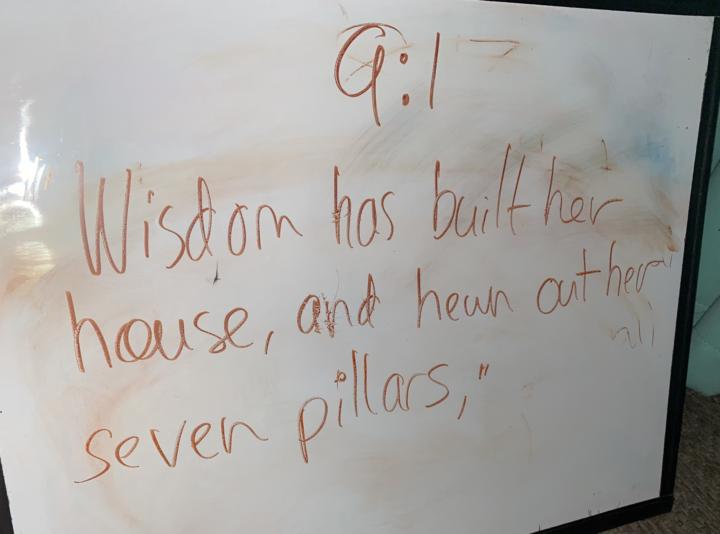 9:1
Wisdom has built her
house, and hewn out her
seven pillars,"